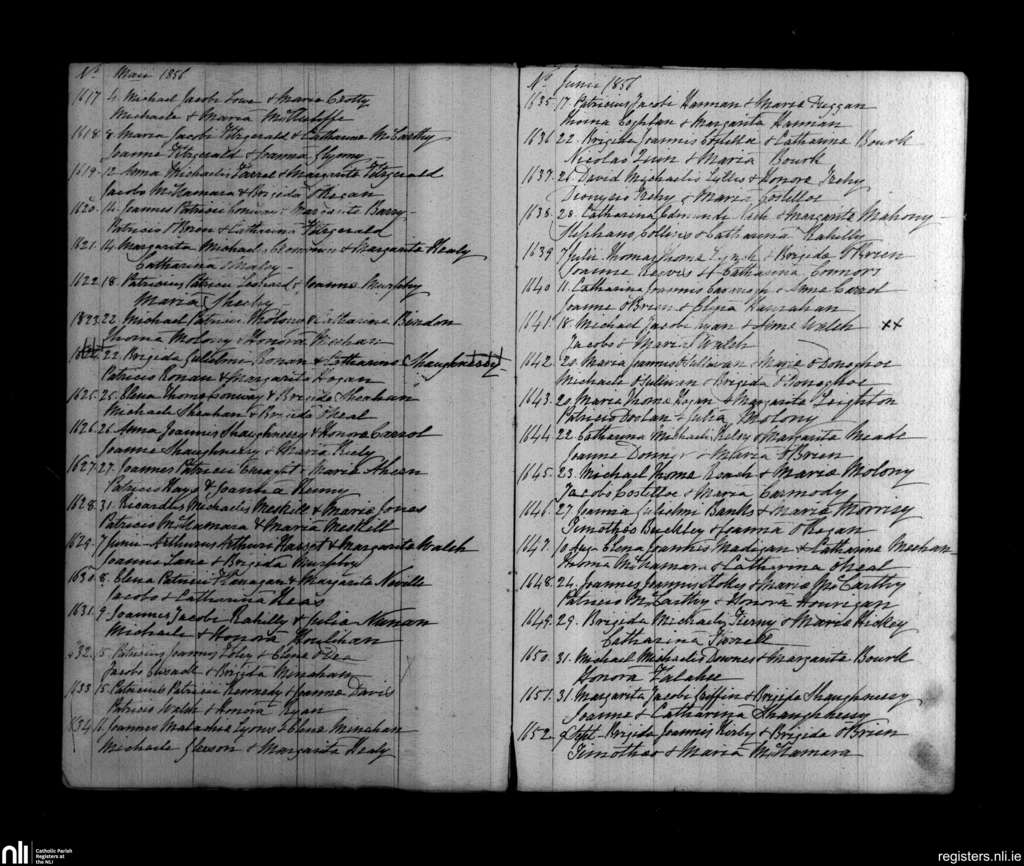 No. Maii 1856
1617 4. Michael Jacobi Lowe & Maria Crotty
Michaele & Maria
1618. 8 Maria Jacobi Fitzgerald & Catharine McCarthy
Joanne Fitzgerald & Joanna
1619. 12 Anna Michaelis Farrel & Margarita Fitzgerald
Jacobo McNamara & Brigida O'Regan
1620. 14. Joannes Patricii Conway & Margarita Barry
Patricio & Catharina Fitzgerald
1621. 14. Margarita Michaelis & Margarita Healy
Catharina Healy
1622. 18. Patricius Patricii & Joanne Murphy
Maria Sheehy
1823. 22. Michael Patricii Molony & Catharine Bindon
Thoma Molony & Honora Meehan
1624. 22. Brigida Gulielmi Ronan & Catharine Shaughnessy
Patricio Ronan & Margarita Hogan
1625. 25. Elena Thome Conway & Brigide Sheehan
Michaele Sheahan & Brigida Neal
1626. 26. Anna Joannis Shaughnessy & Honore Carrol
Joanne Shaughnessy & Maria Kiely
1627. 27. Joannes Patricii & Marie Ahern
Patricio Hays & Joanna Kenny
1628. 31. Ricardus Michaelis Meskill & Marie Jones
Patricio McNamara & Maria Meskill
1629. 7 Junii Arthurus Arthuri & Margarita Walsh
Joannes Lane & Brigida Murphy
1630. 8. Elena Patricii Flanagan & Margarita Neville
Jacobo & Catharina Neas
1631. 9. Joannes Jacobi Rahilly & Julia Nunan
Michaele & Honora Houlihan
1632. 15. Patricius Joannis & Elene Shea
Jacobo & Brigida Monahan
1633 15. Patricius Patricii Kennedy & Joanne Davis
Patricio Walsh & Honora Ryan
1634 11. Joannes Malachie Lyons & Elene Minehan
Michaele Gleeson & Margarita Healy
No. Junii 1856
1635. 17. Patricius Jacobi Hannan & Marie Duggan
Thoma Coghlan & Margarita Hannan
1636. 22. Brigida Joannis Costello & Catharine Bourk
Nicolas Quin & Maria Bourk
1637. 26. David Michaelis Lillis & Honore Trehy
Dionysio Trehy & Maria Costelloe
1638. 28. Catharina Edmundi & Margarita Mahony
Stephano Collins & Catharina Rahilly
1639 7 Julii Thomas Thome Lynch & Brigida O'Brien
Joanne Reeves & Catharina Connors
1640 11. Catharina Joannis & Anne Carrol
Joanne O'Brien & Eliza Hanrahan
1641. 18. Michael Jacobi Ryan & Anne Walsh XX
Jacobo & Maria Walsh
1642. 20. Maria Joannis O'Sullivan & Marie O'Donoghoe
Michaele O'Sullivan & Brigida O'Donoghoe
1643. 20. Maria Thome Hogan & Margarita Leighton
Patricio Doolan & Julia Molony
1644. 22. Catharina Michaelis Kelsy & Margarita Meade
Joanne & Maria O'Brien
1645. 23. Michael Thome Roach & Marie Molony
Jacobo Costelloe & Maria Carmody
1646. 27. Joanna Gulielmi Banks & Marie Morrisy
Timotheo Buckley & Joanna O'Regan
1647. 10 Aug. Elena Joannis Madigan & Catharine Meehan
Thoma McNamara & Catharina O'Neal
1648. 24. Joannes Joannis Stokes & Marie McCarthy
Patricio McCarthy & Honora Hourigan
1649. 29. Brigida Michaelis Tierny & Marie Hickey
Catharina Farrell
1650. 31. Michael Michaelis Downes & Margarita Bourk
Honora Falahee
1651. 31. Margarita Jacobi Griffin & Brigida Shaughnessy
Joanne & Catharina Shaughnessy
1652. 9 Sept. Brigida Joannis Kirby & Brigida O'Brien
Timotheo & Maria McNamara
nli
Catholic Parish
Registers at
the NLI
registers.nli.ie